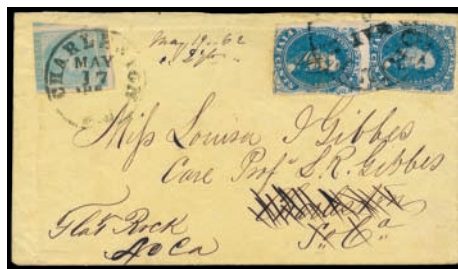 CHARLESTON
MAY
17
May 19. 62
Miss Louisa I Gibbes
Care Prof. L. R. Gibbes
Charleston
Flat Rock
So. Ca
No Ca